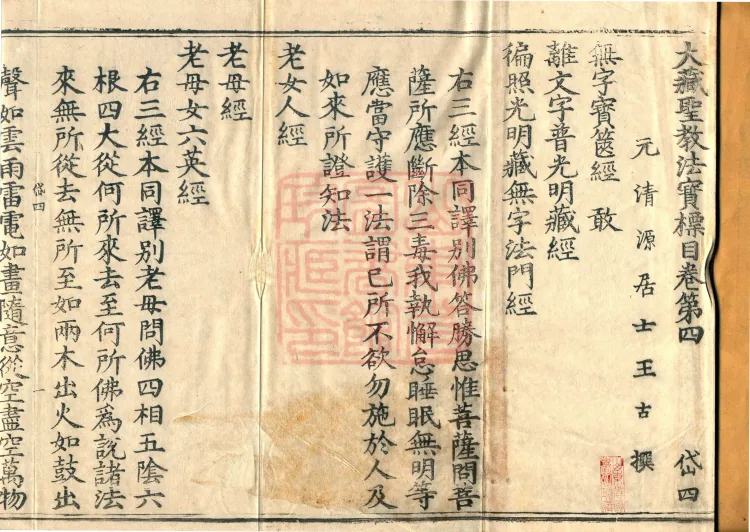 大藏聖教法寶標目卷第四 岱四
元清源居士王古 撰
無字寶篋經 敢
離文字普光明藏經
徧照光明藏無字法門經
右三經本同譯別佛答勝思惟菩薩問菩
薩所應斷除三毒我執懈怠睡眠無明等
應當守護一法謂已所不欲勿施於人及
如來所證知法
老女人經
老母經
老母女六英經
右三經本同譯別老母問佛四相五陰六
根四大從何所來去至何所佛爲說諸法
來無所從去無所至如兩木出火如鼓出
岱四 一
聲如雲雨雷電如畫隨意從空盡空萬物